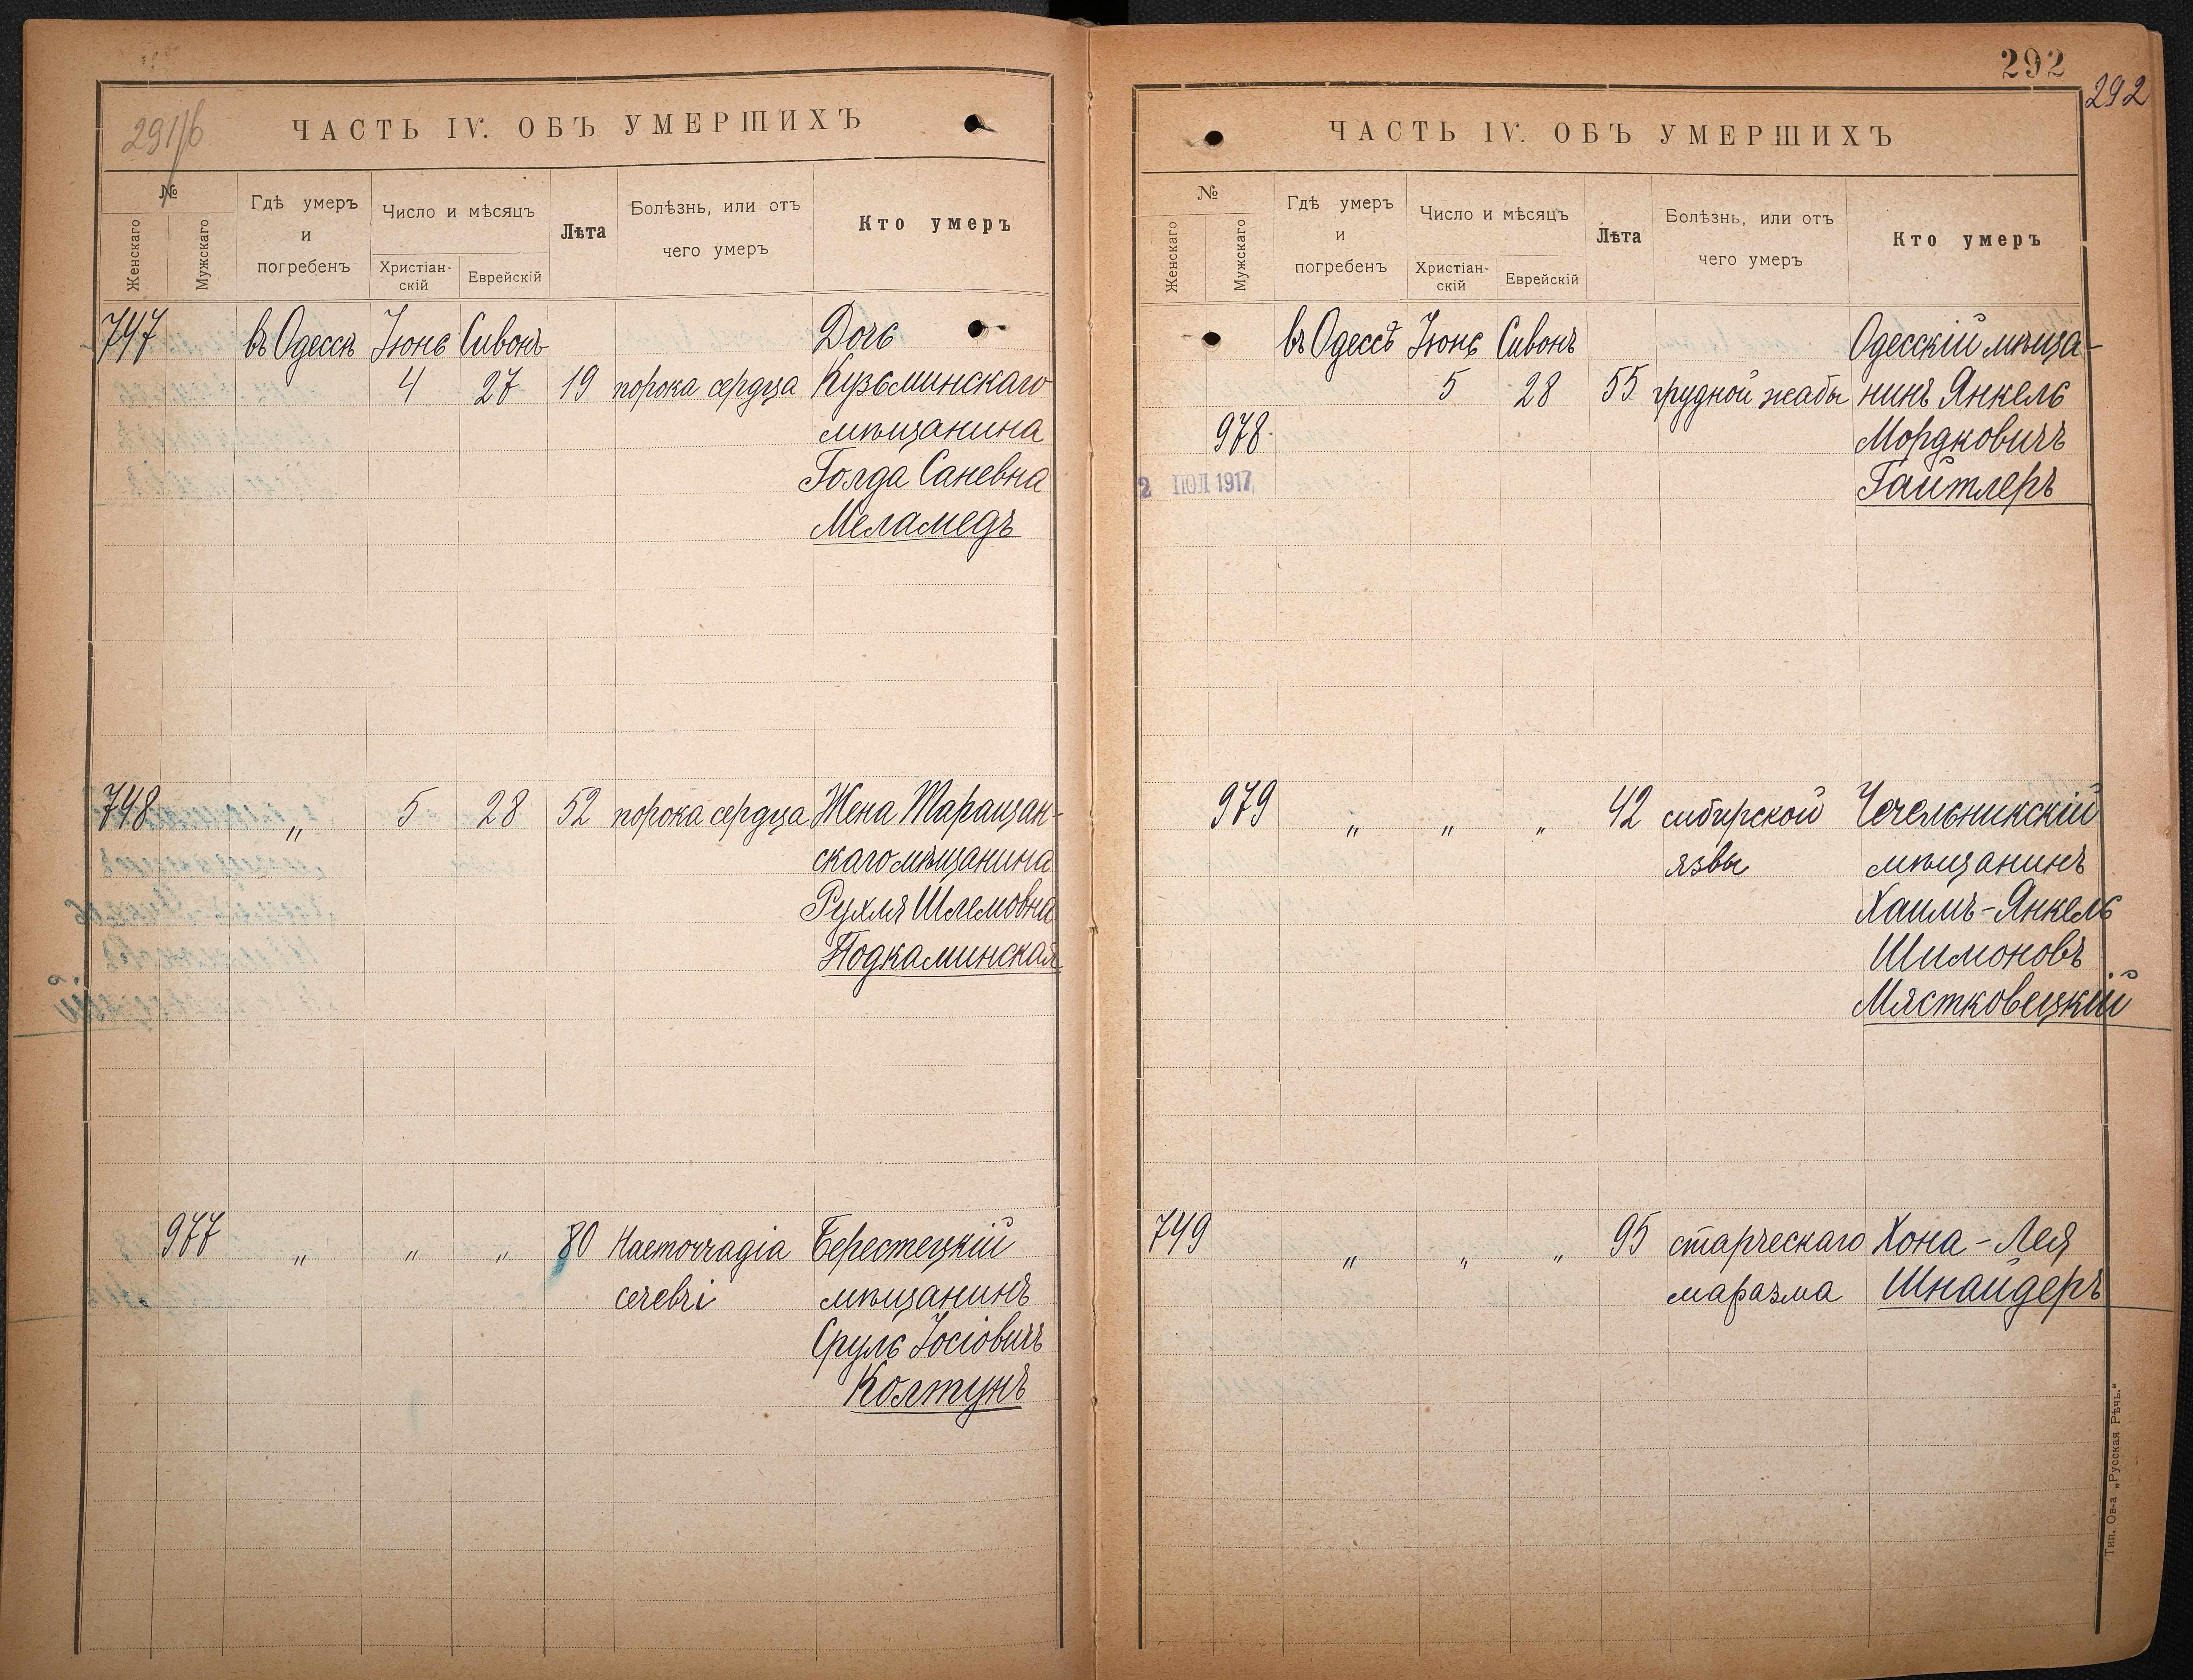 291/б
ЧАСТЬ IV. ОБЪ УМЕРШИХЪ
№
Женскаго
Мужскаго
Гдѣ умеръ
и
погребенъ
Число и мѣсяцъ
Христіан-
скій
Еврейскій
Лѣта
Болѣзнь, или отъ
чего умеръ
Кто умеръ
747 въ Одессѣ Іюнь Сивонъ Дочь
4 27 19 порока сердца Кузьминскаго
мѣщанина
Голда Саневна
Меламедъ
748 " 5 28 52 порока сердца Жена Таращан-
скаго мѣщанина
Рухля Шлемовна
Подкаминская
977 " " " 80 Haemorragia Берестецкій
cerebri мѣщанинъ
Сруль Іосіовичъ
Колтунъ
292
292
ЧАСТЬ IV. ОБЪ УМЕРШИХЪ
№
Женскаго
Мужскаго
Гдѣ умеръ
и
погребенъ
Число и мѣсяцъ
Христіан-
скій
Еврейскій
Лѣта
Болѣзнь, или отъ
чего умеръ
Кто умеръ
въ Одессѣ Іюнь Сивонъ Одесскій мѣща-
5 28 55 грудной жабы нинъ Янкель
978 Мордковичъ
2 ПОЛ 1917 Гайтлеръ
979 " " " 42 сибирской Чечельникскій
язвы мѣщанинъ
Хаимъ-Янкель
Шимоновъ
Мястковецкій
749 " " " 95 старческаго Хона-Лея
маразма Шнайдеръ
Тип. Ов-а „Русская Рѣчь.“